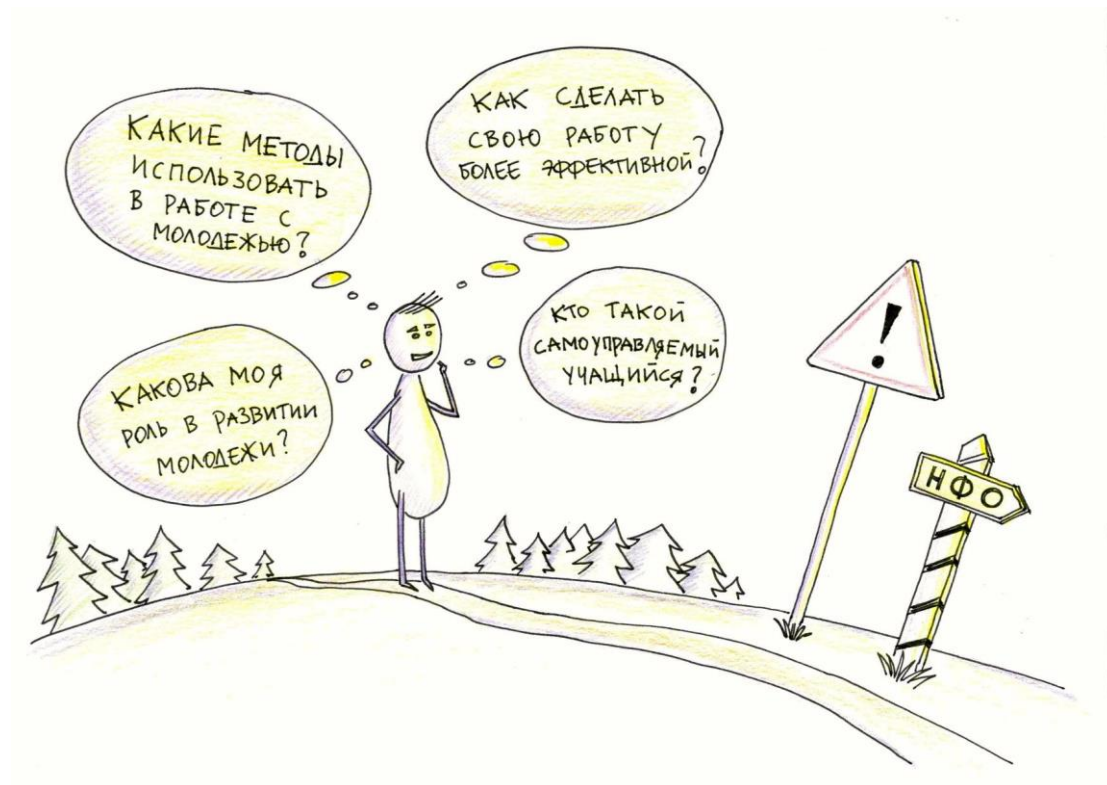 КАКИЕ МЕТОДЫ
ИСПОЛЬЗОВАТЬ
В РАБОТЕ С
МОЛОДЕЖЬЮ?
КАК СДЕЛАТЬ
СВОЮ РАБОТУ
БОЛЕЕ ЭФФЕКТИВНОЙ?
КАКОВА МОЯ
РОЛЬ В РАЗВИТИИ
МОЛОДЕЖИ?
КТО ТАКОЙ
САМОУПРАВЛЯЕМЫЙ
УЧАЩИЙСЯ?
!
НФО